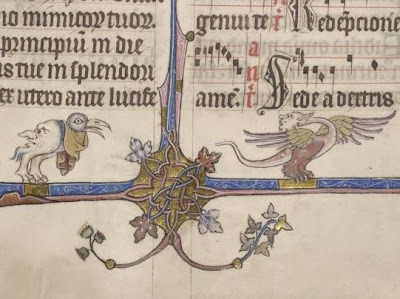 io inimicoꝝ tuoꝝ.
principiū in die
is tue in splendori
ex utero ante lucife
geniu te Redēpcione
ant
amē. Sede a dextris